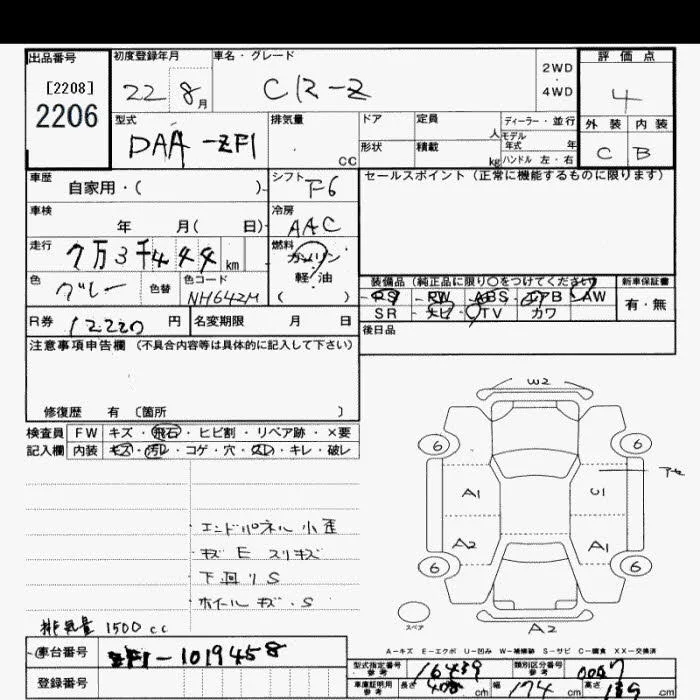 出品番号
[2208]
2206
初度登録年月
22 8月
車名・グレード
CR-Z
2WD
・
4WD
評価点
4
外装 内装
C B
型式
DAA-ZF1
排気量
CC
ドア
定員
人
形状
積載
kg
ディーラー・並行
モデル年式 年
ハンドル 左・右
車歴
自家用・( )
シフト
F6
セールスポイント(正常に機能するものに限ります)
車検
年 月( 日)
冷房
AAC
走行
7万3千444 km
燃料
ガソリン
軽・油
( )
色
グレー
色替
色コード
NH642M
装備品(純正品に限り○をつけてください)
PS・PW・ABS・エアB・AW
SR・ナビ・TV・カワ
新車保証書
有・無
R券
12220 円
名変期限 月 日
後日品
注意事項申告欄 (不具合内容等は具体的に記入して下さい)
修復歴 有 〔箇所 〕
検査員 FW キズ・飛石・ヒビ割・リペア跡・×要
記入欄 内装 キズ・汚レ・コゲ・穴・スレ・キレ・破レ
・エンドパネル 小歪
・キズ E スリキズ
・下回り S
・ホイール キズ・S
排気量 1500cc
W2
6 6
A1 U1
アセ
A2 A1
6 6
スペア
A2
A-キズ E-エクボ U-凹み W-補修跡 S-サビ C-腐食 XX-交換済
車台番号
ZF1-1019458
登録番号
型式指定番号 参考
16439
類別区分番号 参考
0007
車庫証明用 参考
長さ 408 cm
幅 174 cm
高さ 139 cm